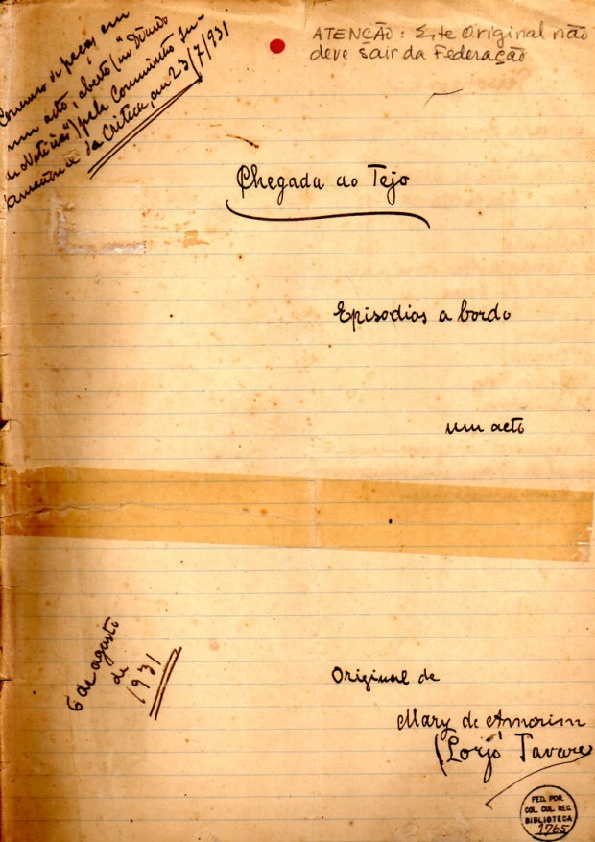 Concurso de peças em
um acto, aberto (in "Diário
de Notícias") pela Commissão
da Critica, em 23/7/931
ATENÇÃO: Este Original não
deve sair da Federação
Chegada ao Tejo
Episodios a bordo
um acto
6 de agosto
de
1931
Original de
Mary de Amorim
(Lorjó Tavares
FED. POR.
COL. CUL. REC.
BIBLIOTECA
1765